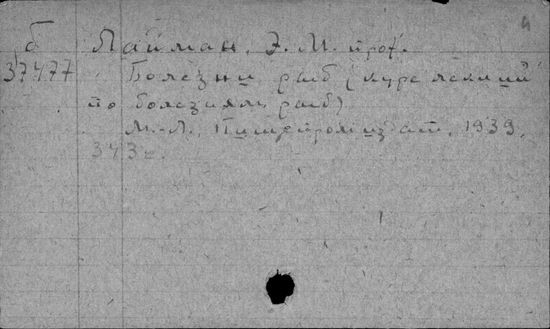 б Лайман, Э. М. проф.
37477 Болезни рыб (курс лекций
по болезням рыб)
М.-Л., Пищепромиздат, 1939.
343 с.